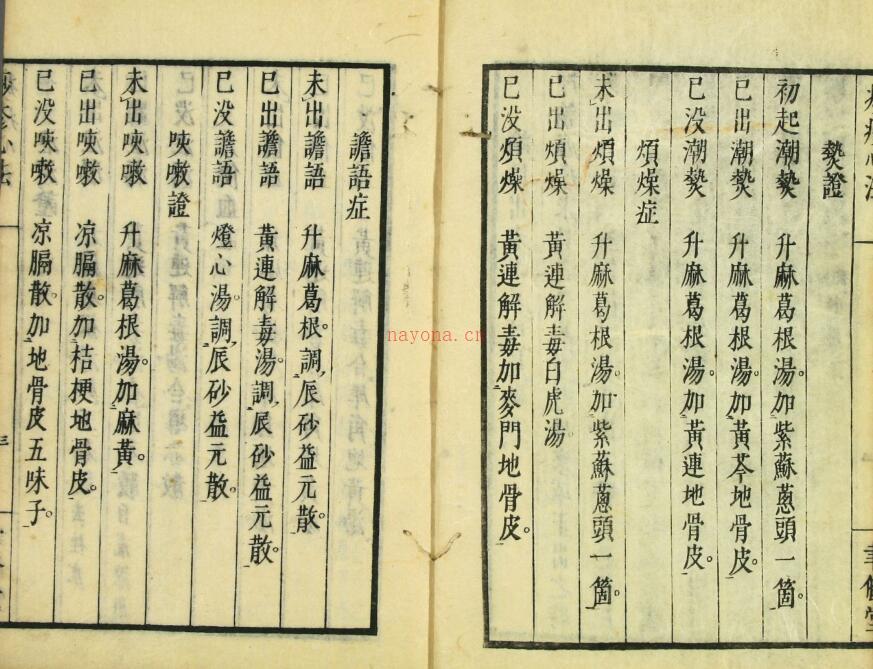 熱證
初起潮熱 升麻葛根湯加紫蘇蔥頭一箇
已出潮熱 升麻葛根湯加黃芩地骨皮
已没潮熱 升麻葛根湯加黃連地骨皮
煩燥症
未出煩燥 升麻葛根湯加紫蘇蔥頭一箇
已出煩燥 黃連解毒白虎湯
已没煩燥 黃連解毒加麥門地骨皮
譫語症
未出譫語 升麻葛根調辰砂益元散
已出譫語 黃連解毒湯調辰砂益元散
已没譫語 燈心湯調辰砂益元散
咳嗽證
未出咳嗽 升麻葛根湯加麻黃
已出咳嗽 凉膈散加桔梗地骨皮
已没咳嗽 凉膈散加地骨皮五味子
三
nayona.cn